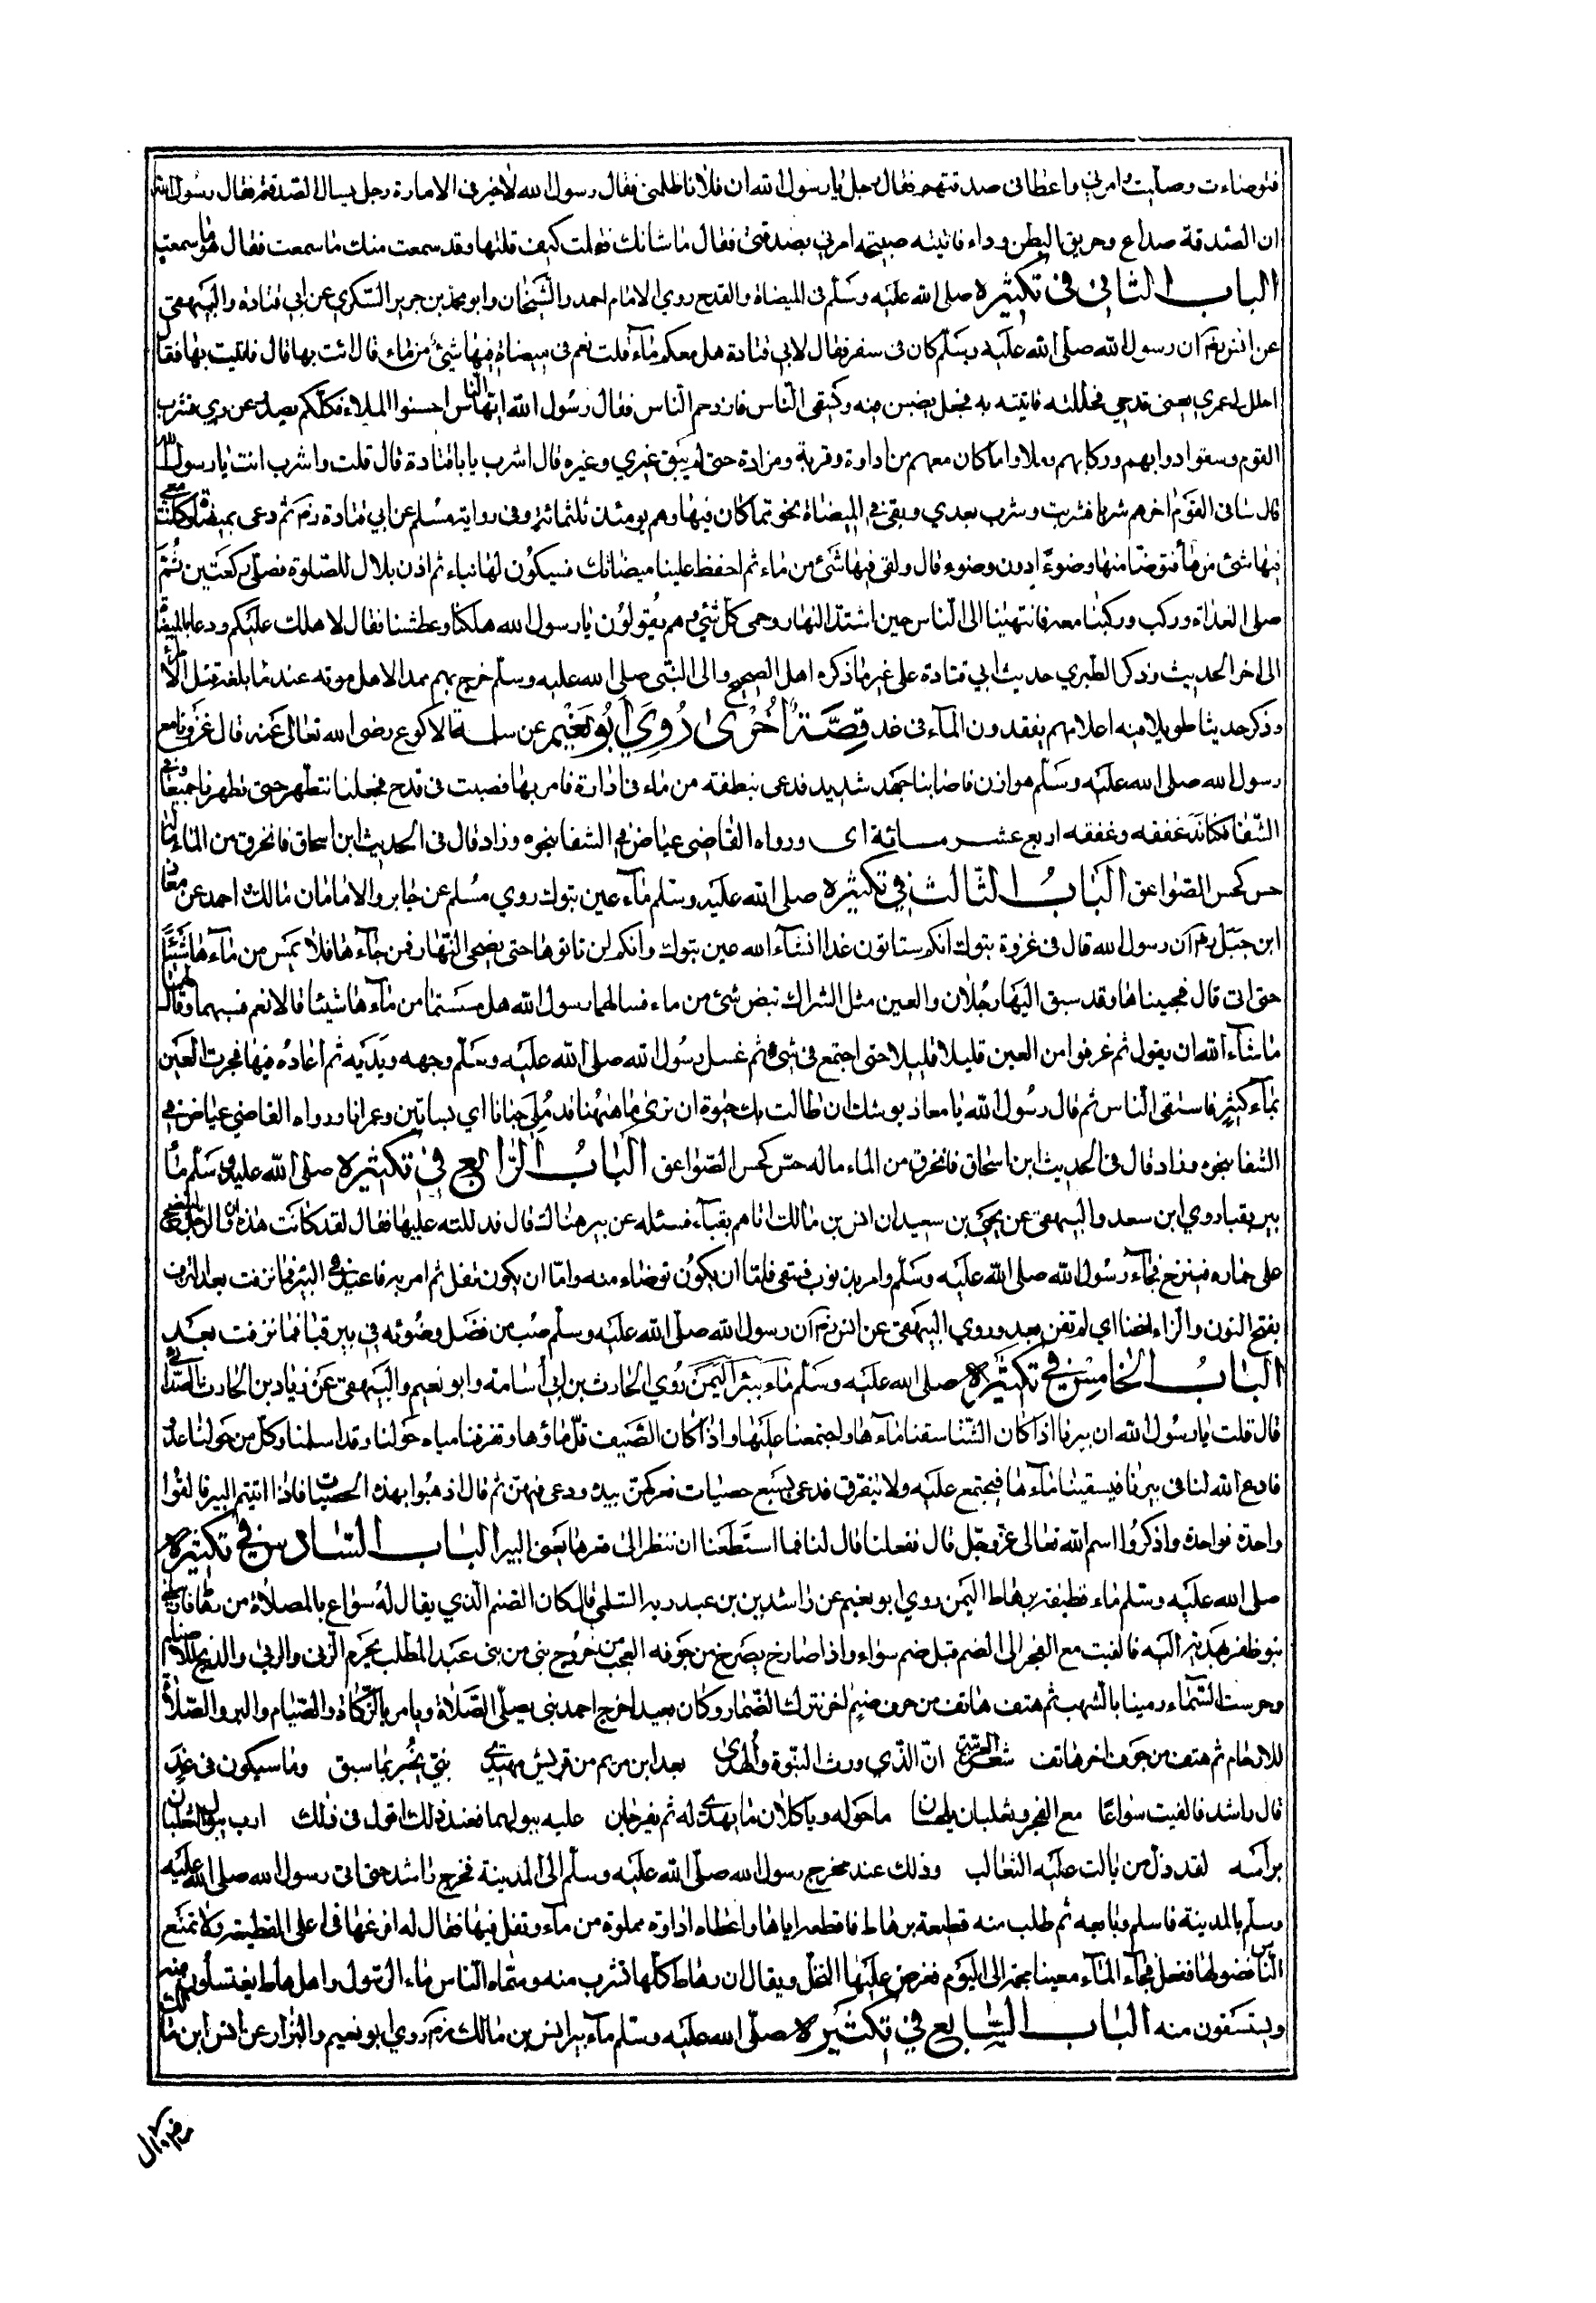 فتوضاءت وصليت وامرني واعطاني صدقتهم فقال رجل يا رسول الله ان فلانا ظلمني فقال رسول الله لا خير في الامارة رجل يسال الصدقة فقال رسول الله
ان الصدقة صداع وحريق البطن وداء فاتيته صحيفة امرتي بصدقتي فقال ما شانك فقلت كيف قلتها وقد سمعت منك ما سمعت فقال هو ما سمعت
الباب الثاني في تكثيره صلى الله عليه وسلم في الميضاة والقدح روي الامام احمد والشيخان وابو محمد بن جرير السكري عن ابي قتادة والبيهقي
عن انس رضه ان رسول الله صلى الله عليه وسلم كان في سفر فقال لابي قتادة هل معكم ماء قلت نعم في ميضاة فيها شئ من ماء قال ائت بها قال فاتيت بها فقال
احلل لي غمري يعني قدحي فحللته فاتيته به فجعل يصب منه وكبقي الناس فازدحم الناس فقال رسول الله ايها الناس احسنوا الملاء فكلكم يصدر عن ري فشرب
القوم وسقوا دوابهم وركابهم وملاوا ما كان معهم من اداوة وقربة ومزادة حتى لم يبق غيري وغيره قال اشرب يا با قتادة قال قلت واشرب انت يا رسول الله
قال ساقي القوم اخرهم شربا فشربت وشرب بعدي وبقي في الميضاة نحو مما كان فيها وهم يومئذ ثلثمائة وفي رواية مسلم عن ابي قتادة رضه ثم دعى بميضاة كانت معي
فيها شئ من ماء فتوضا منها وضوءً ادون وضوء قال ولقي فيها شئ من ماء ثم احفظ علينا ميضاتك فسيكون لها نباء ثم اذن بلال للصلوة فصلى ركعتين ثم
صلى الغداة وركب وركبنا معه فانتهينا الى الناس حين اشتد النهار وحمى كل شئ وهم يقولون يا رسول الله هلكنا وعطشنا فقال لا هلك عليكم ودعا بالميضاة
الى اخر الحديث وذكر الطبري حديث ابي قتادة على غير ما ذكره اهل الصحيح والى النبي صلى الله عليه وسلم خرج بهم ممدا لاهل موته عند ما بلغه قتل الامراء
وذكر حديثا طويلا فيه اعلامهم يفقدون الماء في غد قصة اخرى روي ابو نعيم عن سلمة الاكوع رضى الله تعالى عنه قال غزونا مع
رسول الله صلى الله عليه وسلم هوازن فاصابنا جهد شديد فدعى بنطفة من ماء في اداوة فامر بها فصبت في قدح فجعلنا نتطهر حتى تطهرنا جميعا وفي
الشفا فكانه غفقه وغفقه اربع عشر مائة اى ورواه القاضى عياض في الشفا بنحوه وزاد قال في الحديث ابن اسحاق فانخرق من الماء ما له
حس كحس الصواعق الباب الثالث في تكثيره صلى الله عليه وسلم ماء عين تبوك روي مسلم عن جابر والامامان مالك احمد عن معاذ
ابن جبل رضه ان رسول الله قال في غزوة تبوك انكم ستاتون غدا انشاء الله عين تبوك وانكم لن تاتوها حتى يضحى النهار فمن جاءها فلا يمس من ماءها شيئا
حتى اتي قال فجيناها وقد سبق اليها رجلان والعين مثل الشراك تبض شئ من ماء فسالهما رسول الله هل مسستما من ماءها شيئا قالا نعم فسبهما وقال لهما
ما شاء الله ان يقول ثم غرفوا من العين قليلا قليلا حتى اجتمع في شئ ثم غسل رسول الله صلى الله عليه وسلم وجهه ويديه ثم اعاده فيها فجرت العين
بماء كثير فاستقى الناس ثم قال رسول الله يا معاذ يوشك ان طالت بك حيوة ان ترى ما ههنا قد ملئ جنانا اي بساتين وعمرانا ورواه القاضي عياض في
الشفا بنحوه وزاد قال في الحديث ابن اسحاق فانخرق من الماء ما له حس كحس الصواعق الباب الرابع في تكثيره صلى الله عليه وسلم ماء
بير بقبا روي ابن سعد والبيهقي عن يحيى بن سعيد ان انس بن مالك اتاهم بقباء فسئله عن بير هناك قال فدللته عليها فقال لقد كانت هذه وان الرجل لينضح
على حماره فينزح فجاء رسول الله صلى الله عليه وسلم وامر بذنوب فسقى فاما ان يكون توضاء منه واما ان يكون تفل ثم امر به فاعيد في البئر فما نزفت بعد نزف
بفتح النون والزاء ايضا اي لم تفن بعد وروي البيهقي عن انس رضه ان رسول الله صلى الله عليه وسلم صب من فضل وضوئه في بير قبا فما نزفت بعد
الباب الخامس في تكثيره صلى الله عليه وسلم ماء بئر اليمن روي الحارث بن ابي اسامة وابو نعيم والبيهقي عن زياد بن الحارث الصدائي
قال قلت يا رسول الله ان بيرنا اذا كان الشتا سقنا ماءها واجتمعنا عليها واذا كان الصيف قل ماؤها وتفرقنا مياه حولنا وقد اسلمنا وكل من حولنا عدو
فادع الله لنا في بيرنا فيسقينا ماءها فنجتمع عليه ولا نتفرق فدعى بسبع حصيات فعركهن بيده ودعى فيهن ثم قال اذهبوا بهذه الحصيات فاذا اتيتم البير فالقوا
واحدة فواحدة واذكروا اسم الله تعالى عز وجل قال ففعلنا قال لنا فما استطعنا ان ننظر الى قعرها يعني البير الباب السادس في تكثيره
صلى الله عليه وسلم ماء قطيفة برهاط اليمن روي ابو نعيم عن راشد بن بن عبد ربه السلمي قال كان الصنم الذي يقال له سواع بالمصلاة من رهاط فارسلني
بنو ظفر بهدية اليه فالفيت مع الفجر الى الضم قبل ضم سواء واذا صارخ يصرخ من جوفه العجب من خروج بني من بني عبد المطلب يحرم الزنى والربي والذبح للاصنام
وحرست السماء ورمينا بالشهب ثم هتف هاتف من حرف صنم اخر نترك الضمار وكان بعيد اخرج احمد نبي يصلي الصلاة ويامر بالزكاة والصيام والبر والصلاة
للارحام ثم هتف من جوف اخر هاتف شعر ان الذي ورث النبوة والهدى بعد ابن مريم من قريش مهتدى نبي يخبر بما سبق وما سيكون في غد
قال راشد فالفيت سواعا مع الفجر وثعلبان يلحسان ما حوله وياكلان ما يهدى له ثم يفرجان عليه ببولهما فعند ذلك اقول في ذلك ارب يبول الثعلبان
براسه لقد ذل من بالت عليه الثعالب وذلك عند مخرج رسول الله صلى الله عليه وسلم الى المدينة فخرج راشد حتى اتى رسول الله صلى الله عليه
وسلم بالمدينة فاسلم وبايعه ثم طلب منه قطيعة برهاط فاقطعه اياها واعطاه اداوة مملوة من ماء وتفل فيها فقال له افرغها في اعلى القطيعة ولا تمنع
الناس فضولها ففعل فجاء الماء معينا مجة الى اليوم فغرس عليها النخل ويقال ان رهاط كلها تشرب منه وسماه الناس ماء الرسول واهل رهاط يغتسلون منه
ويستسقون منه الباب السابع في تكثيره صلى الله عليه وسلم ماء بير انس بن مالك رضه روي ابو نعيم والبزار عن انس ابن مالك